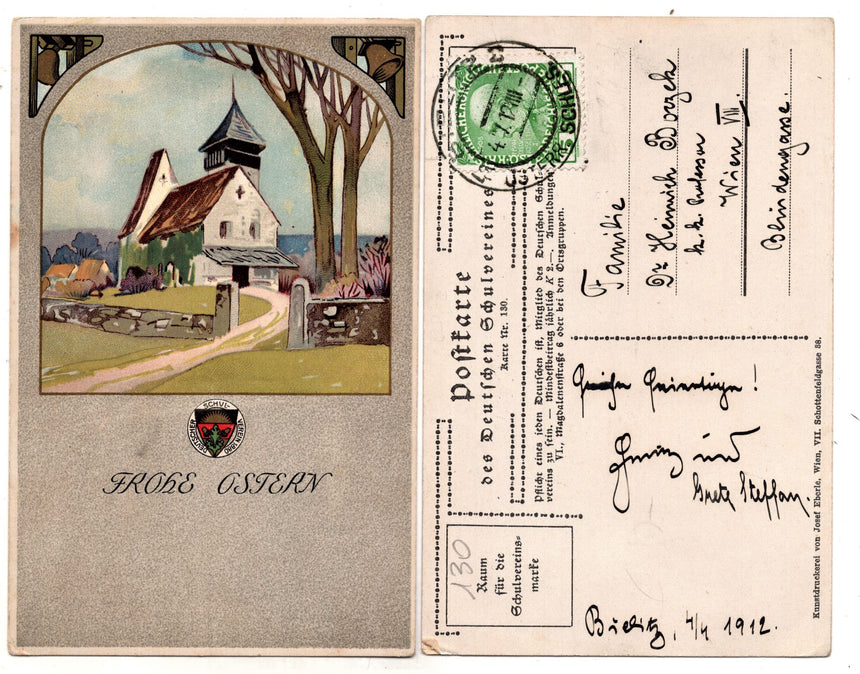 DEUTSCHER SCHUL-VEREIN 1880
FROHE OSTERN
Postkarte
des Deutschen Schulvereines
Karte Nr. 130.
Pflicht eines jeden Deutschen ist, Mitglied des Deutschen Schul-
vereins zu sein. — Mindestbeitrag jährlich K 2.—. Anmeldungen
VI., Magdalenenstraße 6 oder bei den Ortsgruppen.
130
Raum
für die
Schulvereins-
marke
ÖSTERR. SCHLES
Familie
Dr Heinrich
k.k. Professor
Wien VIII.
Blindengasse.
Feiertage!
und
Grete Steffan.
Bielitz, 4/4 1912.
Kunstdruckerei von Josef Eberle, Wien, VII. Schottenfeldgasse 38.